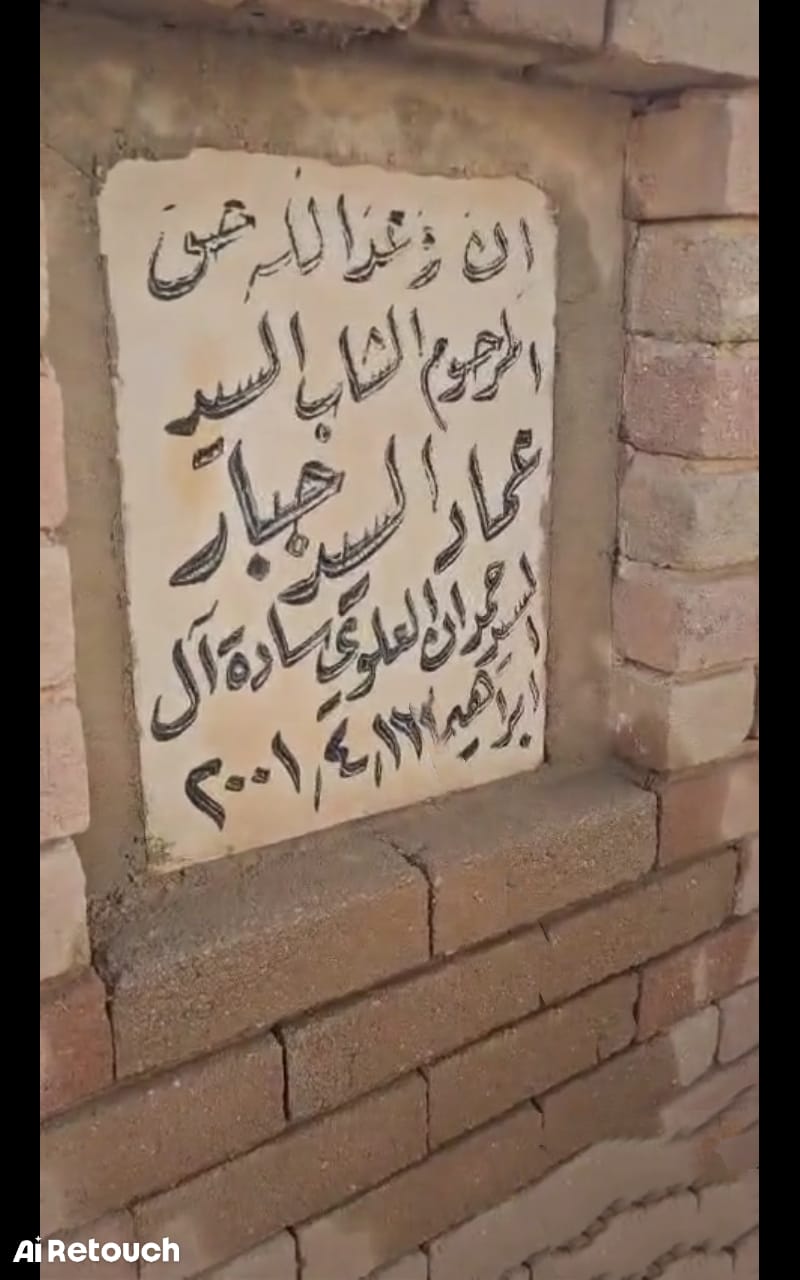 ان وعد الله حق
المرحوم الشاب السيد
عماد السيد جبار
السيد حمدان العلوي سادة آل
ابراهيم ١٦/٤/٢٠٠١
Ai Retouch